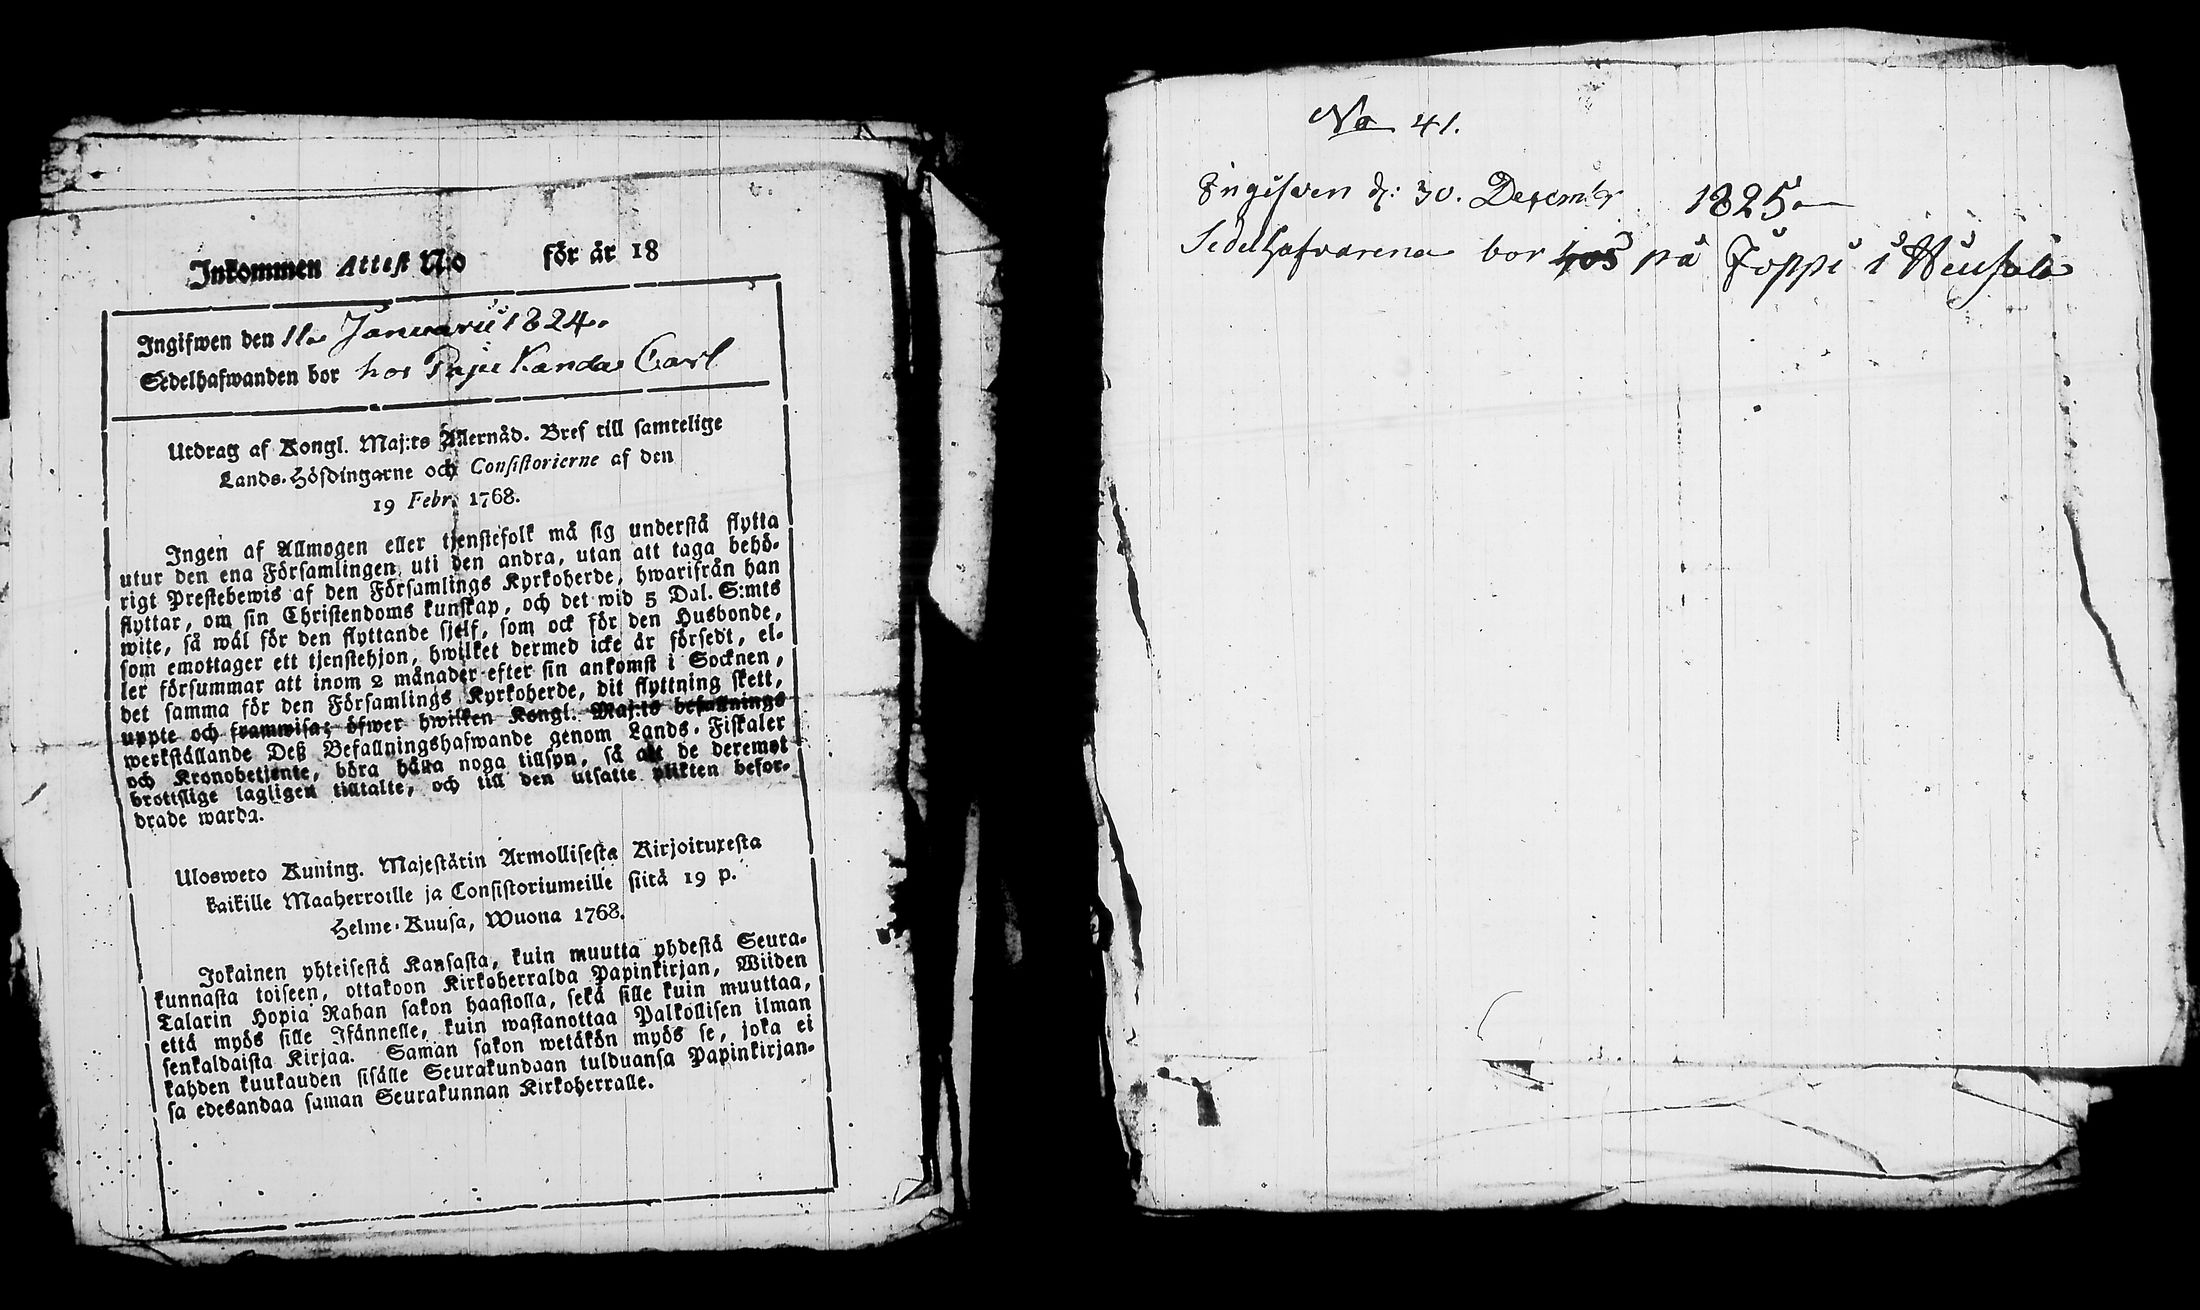 Inkommen Attest N:o för år 18
Ingifwen den 11. Januarii 1824.
Sedelhafwanden bor hos Paju Kanda Carl
Utdrag af Kongl. Maj:ts Allernåd. Bref till samtelige
Lands-Höfdingarne och Consistorierne af den
19 Febr. 1768.
Ingen af Allmogen eller tjenstefolk må sig understå flytta
utur den ena Församlingen uti den andra, utan att taga behö-
rigt Prestebewis af den Församlings Kyrkoherde, hwarifrån han
flyttar, om sin Christendoms kunskap, och det wid 5 Dal. S:mts
wite, så wäl för den flyttande sjelf, som ock för den Husbonde,
som emottager ett tjenstehjon, hwilket dermed icke är försedt, el-
ler försummar att inom 2 månader efter sin ankomst i Socknen,
det samma för den Församlings Kyrkoherde, dit flyttning skett,
uppte och framwisa; öfwer hwilken Kongl. Maj:ts befallnings
werkställande Deß Befallningshafwande genom Lands-Fiskaler
och Kronobetjente, böra hålla noga tillsyn, så att de deremot
brottslige lagligen tilltalte, och till den utsatte plikten befor-
drade warda.
Ulosweto Kuning. Majestätin Armollisesta Kirjoituxesta
kaikille Maaherroille ja Consistoriumeille siitä 19 p.
Helme-Kuusa, Wuona 1768.
Jokainen yhteisestä Kansasta, kuin muutta yhdestä Seura-
kunnasta toiseen, ottakoon Kirkoherralda Papinkirjan, Wiiden
Talarin Hopia Rahan sakon haastolla, sekä sille kuin muuttaa,
että myös sille Isännelle, kuin wastanottaa Palkollisen ilman
senkaldaista Kirjaa. Saman sakon wetäkön myös se, joka ei
kahden kuukauden sisälle Seurakundaan tulduansa Papinkirjan-
sa edesandaa saman Seurakunnan Kirkoherralle.
No 41.
Ingifven d: 30. Decembr 1825.
Sedelhafvarena bor hos på Joppi i